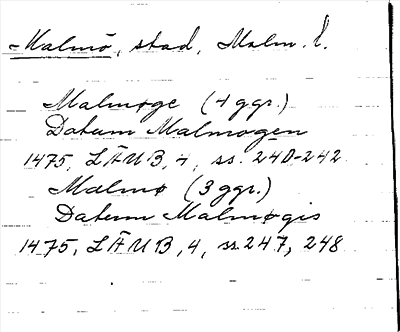 Malmö, stad, Malm. l.
Malmøge (4 ggr.)
Datum Malmogen
1475, LÄUB, 4, ss. 240-242
Malmø (3 ggr.)
Datum Malmøgis
1475, LÄUB, 4, ss. 247, 248